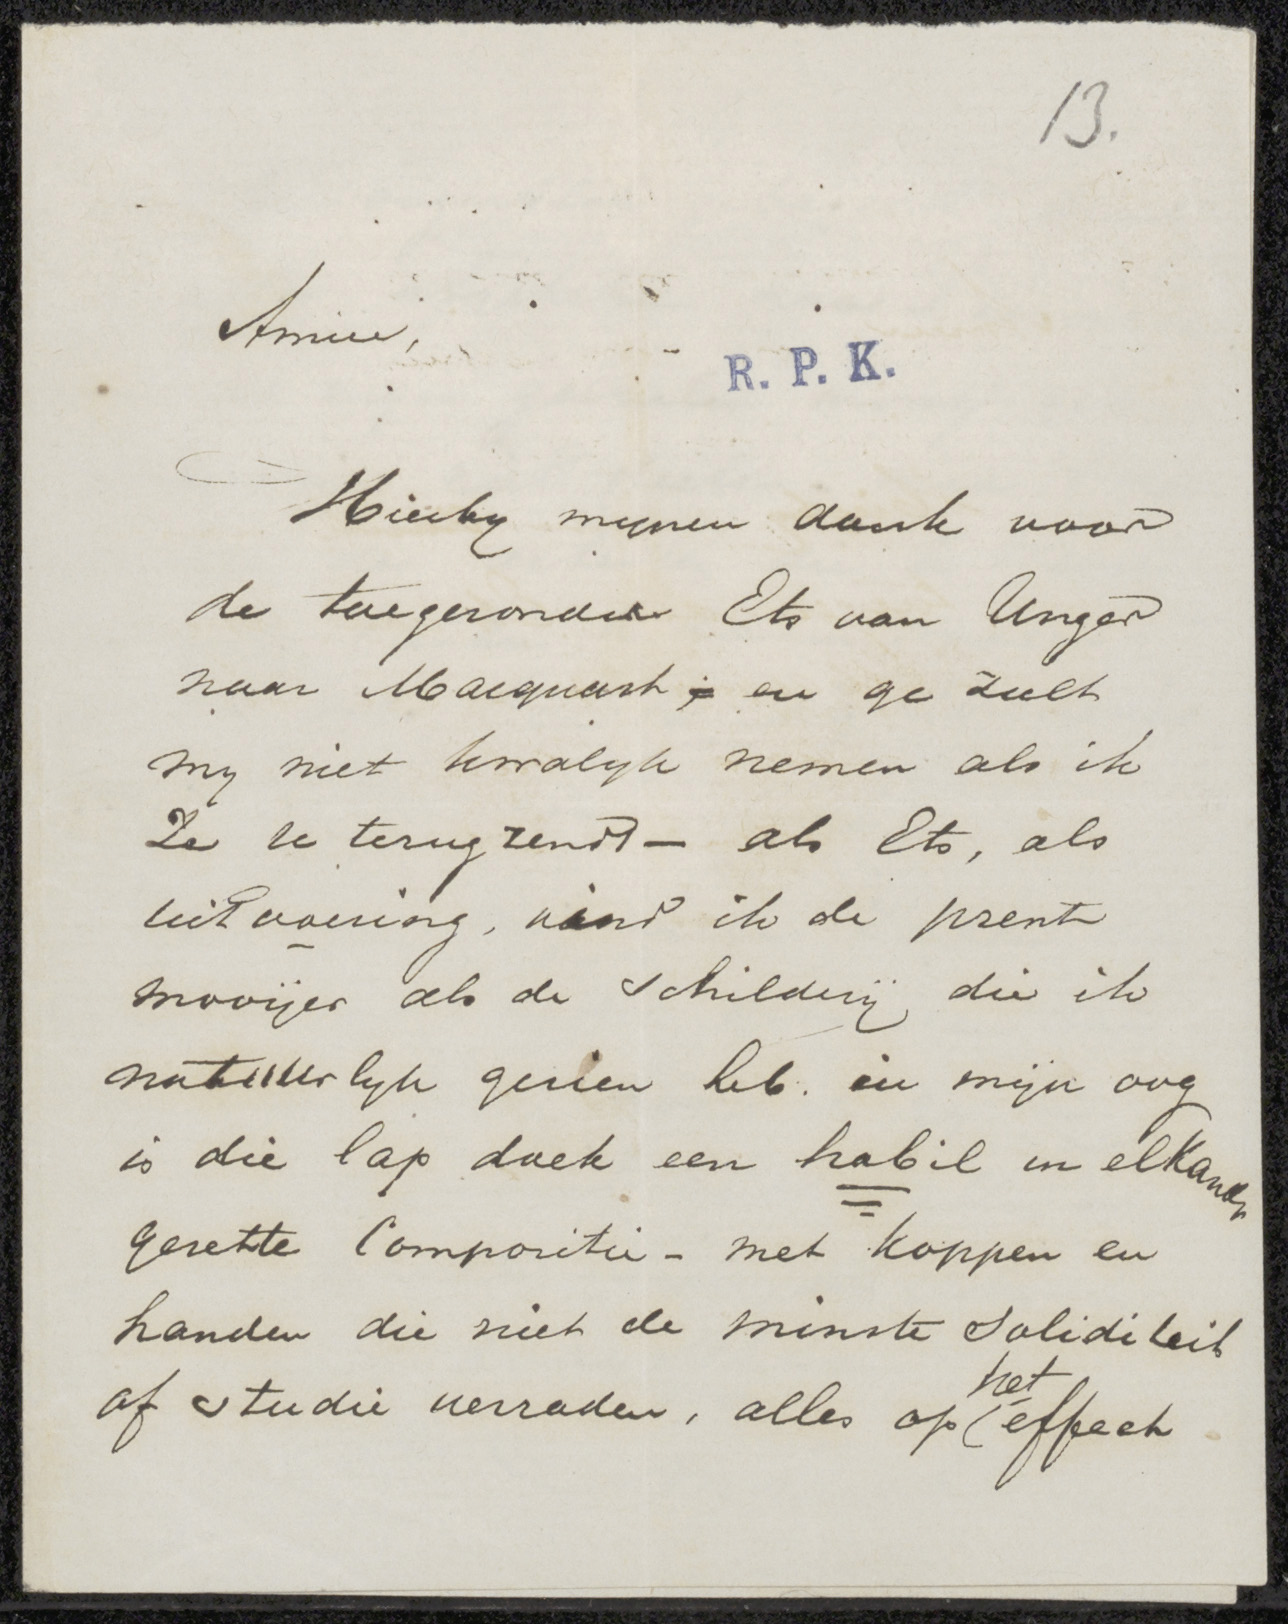 13.
Amice,
R. P. K.
Hierby mynen dank voor
de toegezonden Ets van Unger
naar Macquart; en ge zult
my niet kwalyk nemen als ik
Ze U terugzendt - als Ets, als
uitvoering, vind ik de prent
mooijer als de schilderij die ik
natuurlyk gezien heb. in mijn oog
is die lap doek een habil in elkander
gezette Compositie - met koppen en
handen die niet de minste soliditeit
of studie verraden, alles op het effect